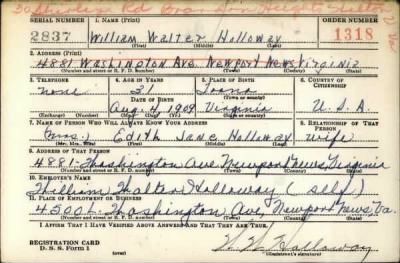 SERIAL NUMBER 1. NAME (Print) ORDER NUMBER
2837 William Walter Holloway 1318
(First) (Middle) (Last)
2. ADDRESS (Print)
4881 Washington Ave. Newport News Virginia
(Number and street or R. F. D. number) (Town) (County) (State)
3. TELEPHONE 4. AGE IN YEARS 5. PLACE OF BIRTH 6. COUNTRY OF CITIZENSHIP
none 31 Toano
DATE OF BIRTH (Town or county)
Aug. 4 1909 Virginia U.S.A.
(Exchange) (Number) (Mo.) (Day) (Yr.) (State or country)
7. NAME OF PERSON WHO WILL ALWAYS KNOW YOUR ADDRESS 8. RELATIONSHIP OF THAT PERSON
(Mrs.) Edith Jane Holloway wife
(Mr., Mrs., Miss) (First) (Middle) (Last)
9. ADDRESS OF THAT PERSON
4881- Washington Ave Newport News, Virginia
(Number and street or R. F. D. number) (Town) (County) (State)
10. EMPLOYER'S NAME
William Walter Holloway (self)
11. PLACE OF EMPLOYMENT OR BUSINESS
4500 Washington Ave, Newport News Va.
(Number and street or R. F. D. number) (Town) (County) (State)
I AFFIRM THAT I HAVE VERIFIED ABOVE ANSWERS AND THAT THEY ARE TRUE.
REGISTRATION CARD
D. S. S. Form 1 W. W. Holloway
(Registrant's signature)